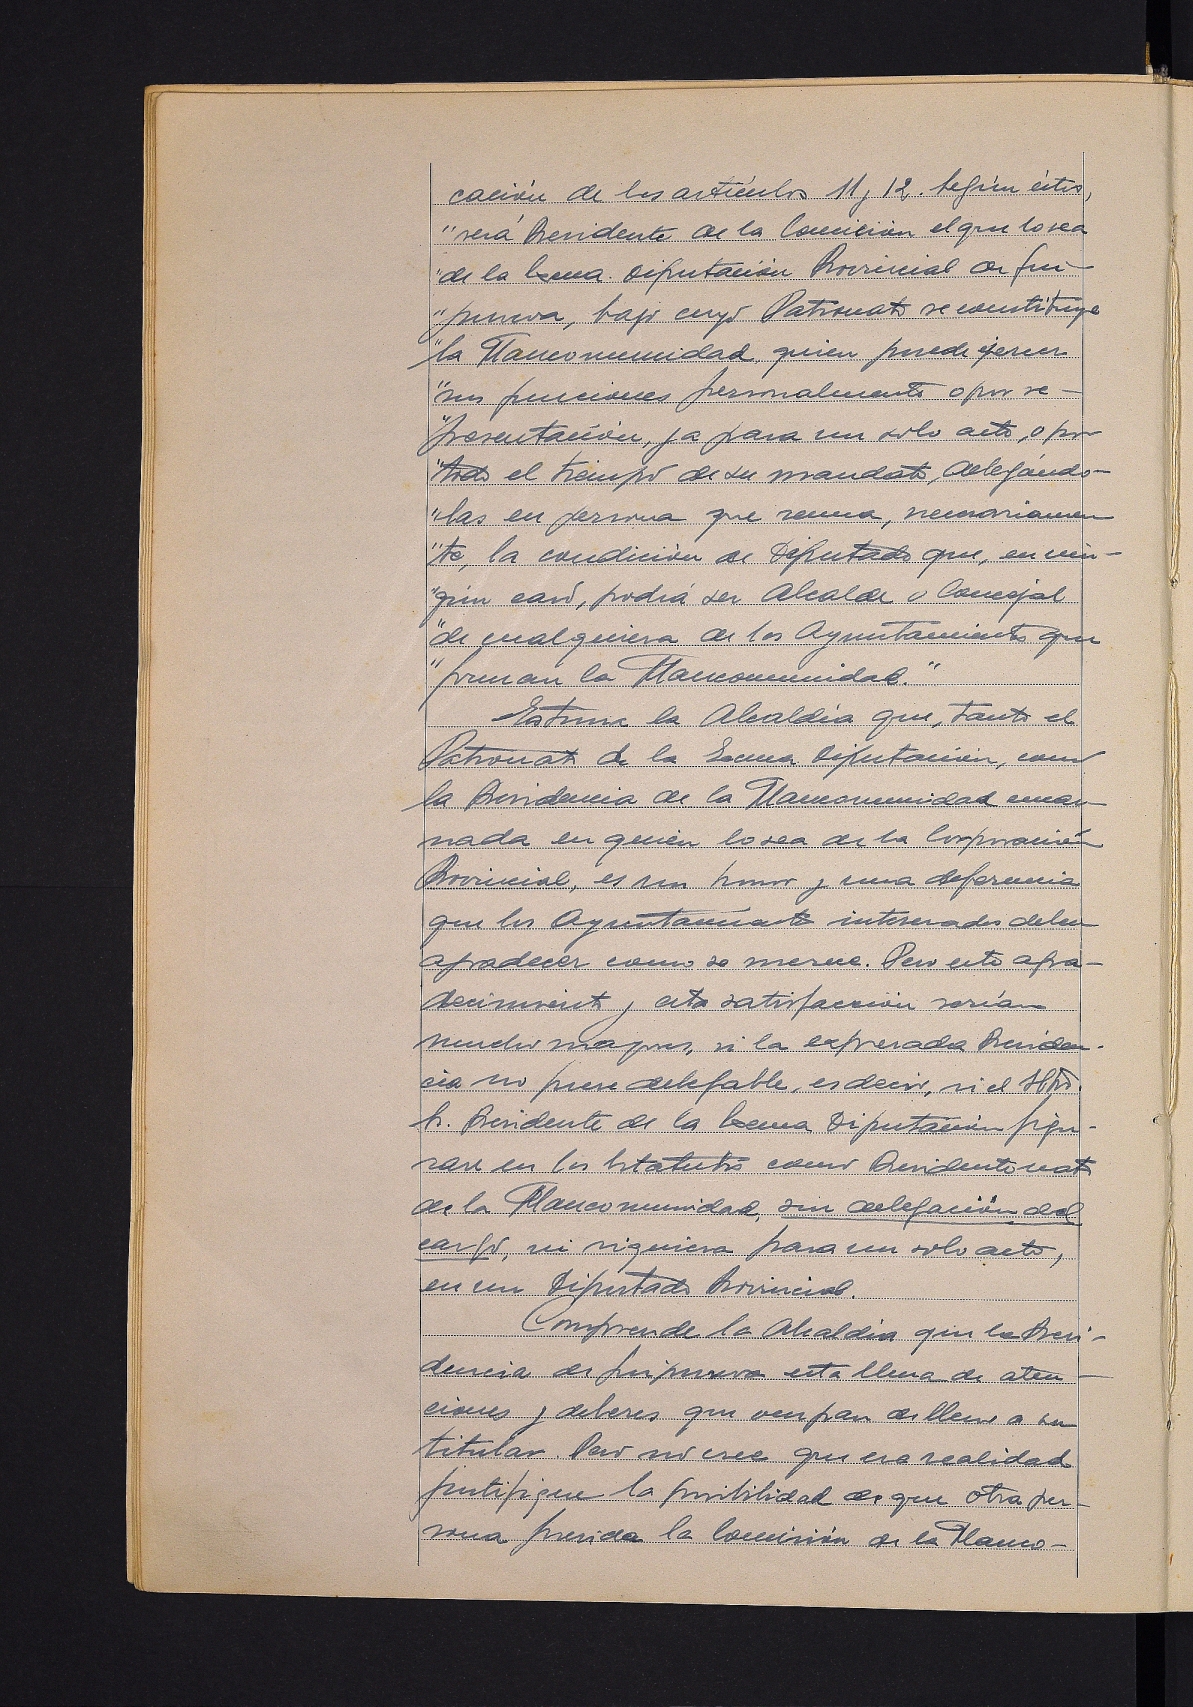 cación de los artículos 11 y 12. Según éstos,
"será Presidente de la Comisión el que lo sea
"de la Excma. Diputación Provincial de Gui-
"púzcoa, bajo cuyo Patronato se constituye
"la Mancomunidad, quien puede ejercer
"sus funciones personalmente o por re-
"presentación, ya para un solo acto, o por
"todo el tiempo de su mandato, delegándo-
"las en persona que reuna, necesariamen
"te, la condición de Diputado que, en nin-
"gún caso, podrá ser Alcalde o Concejal
"de cualquiera de los Ayuntamientos que
"forman la Mancomunidad."
Estima la Alcaldía que, tanto el
Patronato de la Excma Diputación, como
la Presidencia de la Mancomunidad encar
nada en quien lo sea de la Corporación
Provincial, es un honor y una deferencia
que los Ayuntamientos interesados deben
agradecer como se merece. Pero este agra-
decimiento y esta satisfacción serían
mucho mayores, si la expresada Presiden-
cia no fuese delegable, es decir, si el Iltmo.
Sr. Presidente de la Excma Diputación figu-
rase en los Estatutos como Presidente nato
de la Mancomunidad, sin delegación del
cargo, ni siquiera para un solo acto,
en un Diputado Provincial.
Comprende la Alcaldía que la Presi-
dencia de Guipúzcoa esta llena de aten-
ciones y deberes que ocupan de lleno a su
titular. Pero no cree que esa realidad
justifique la posibilidad de que otra per-
sona presida la Comisión de la Manco-